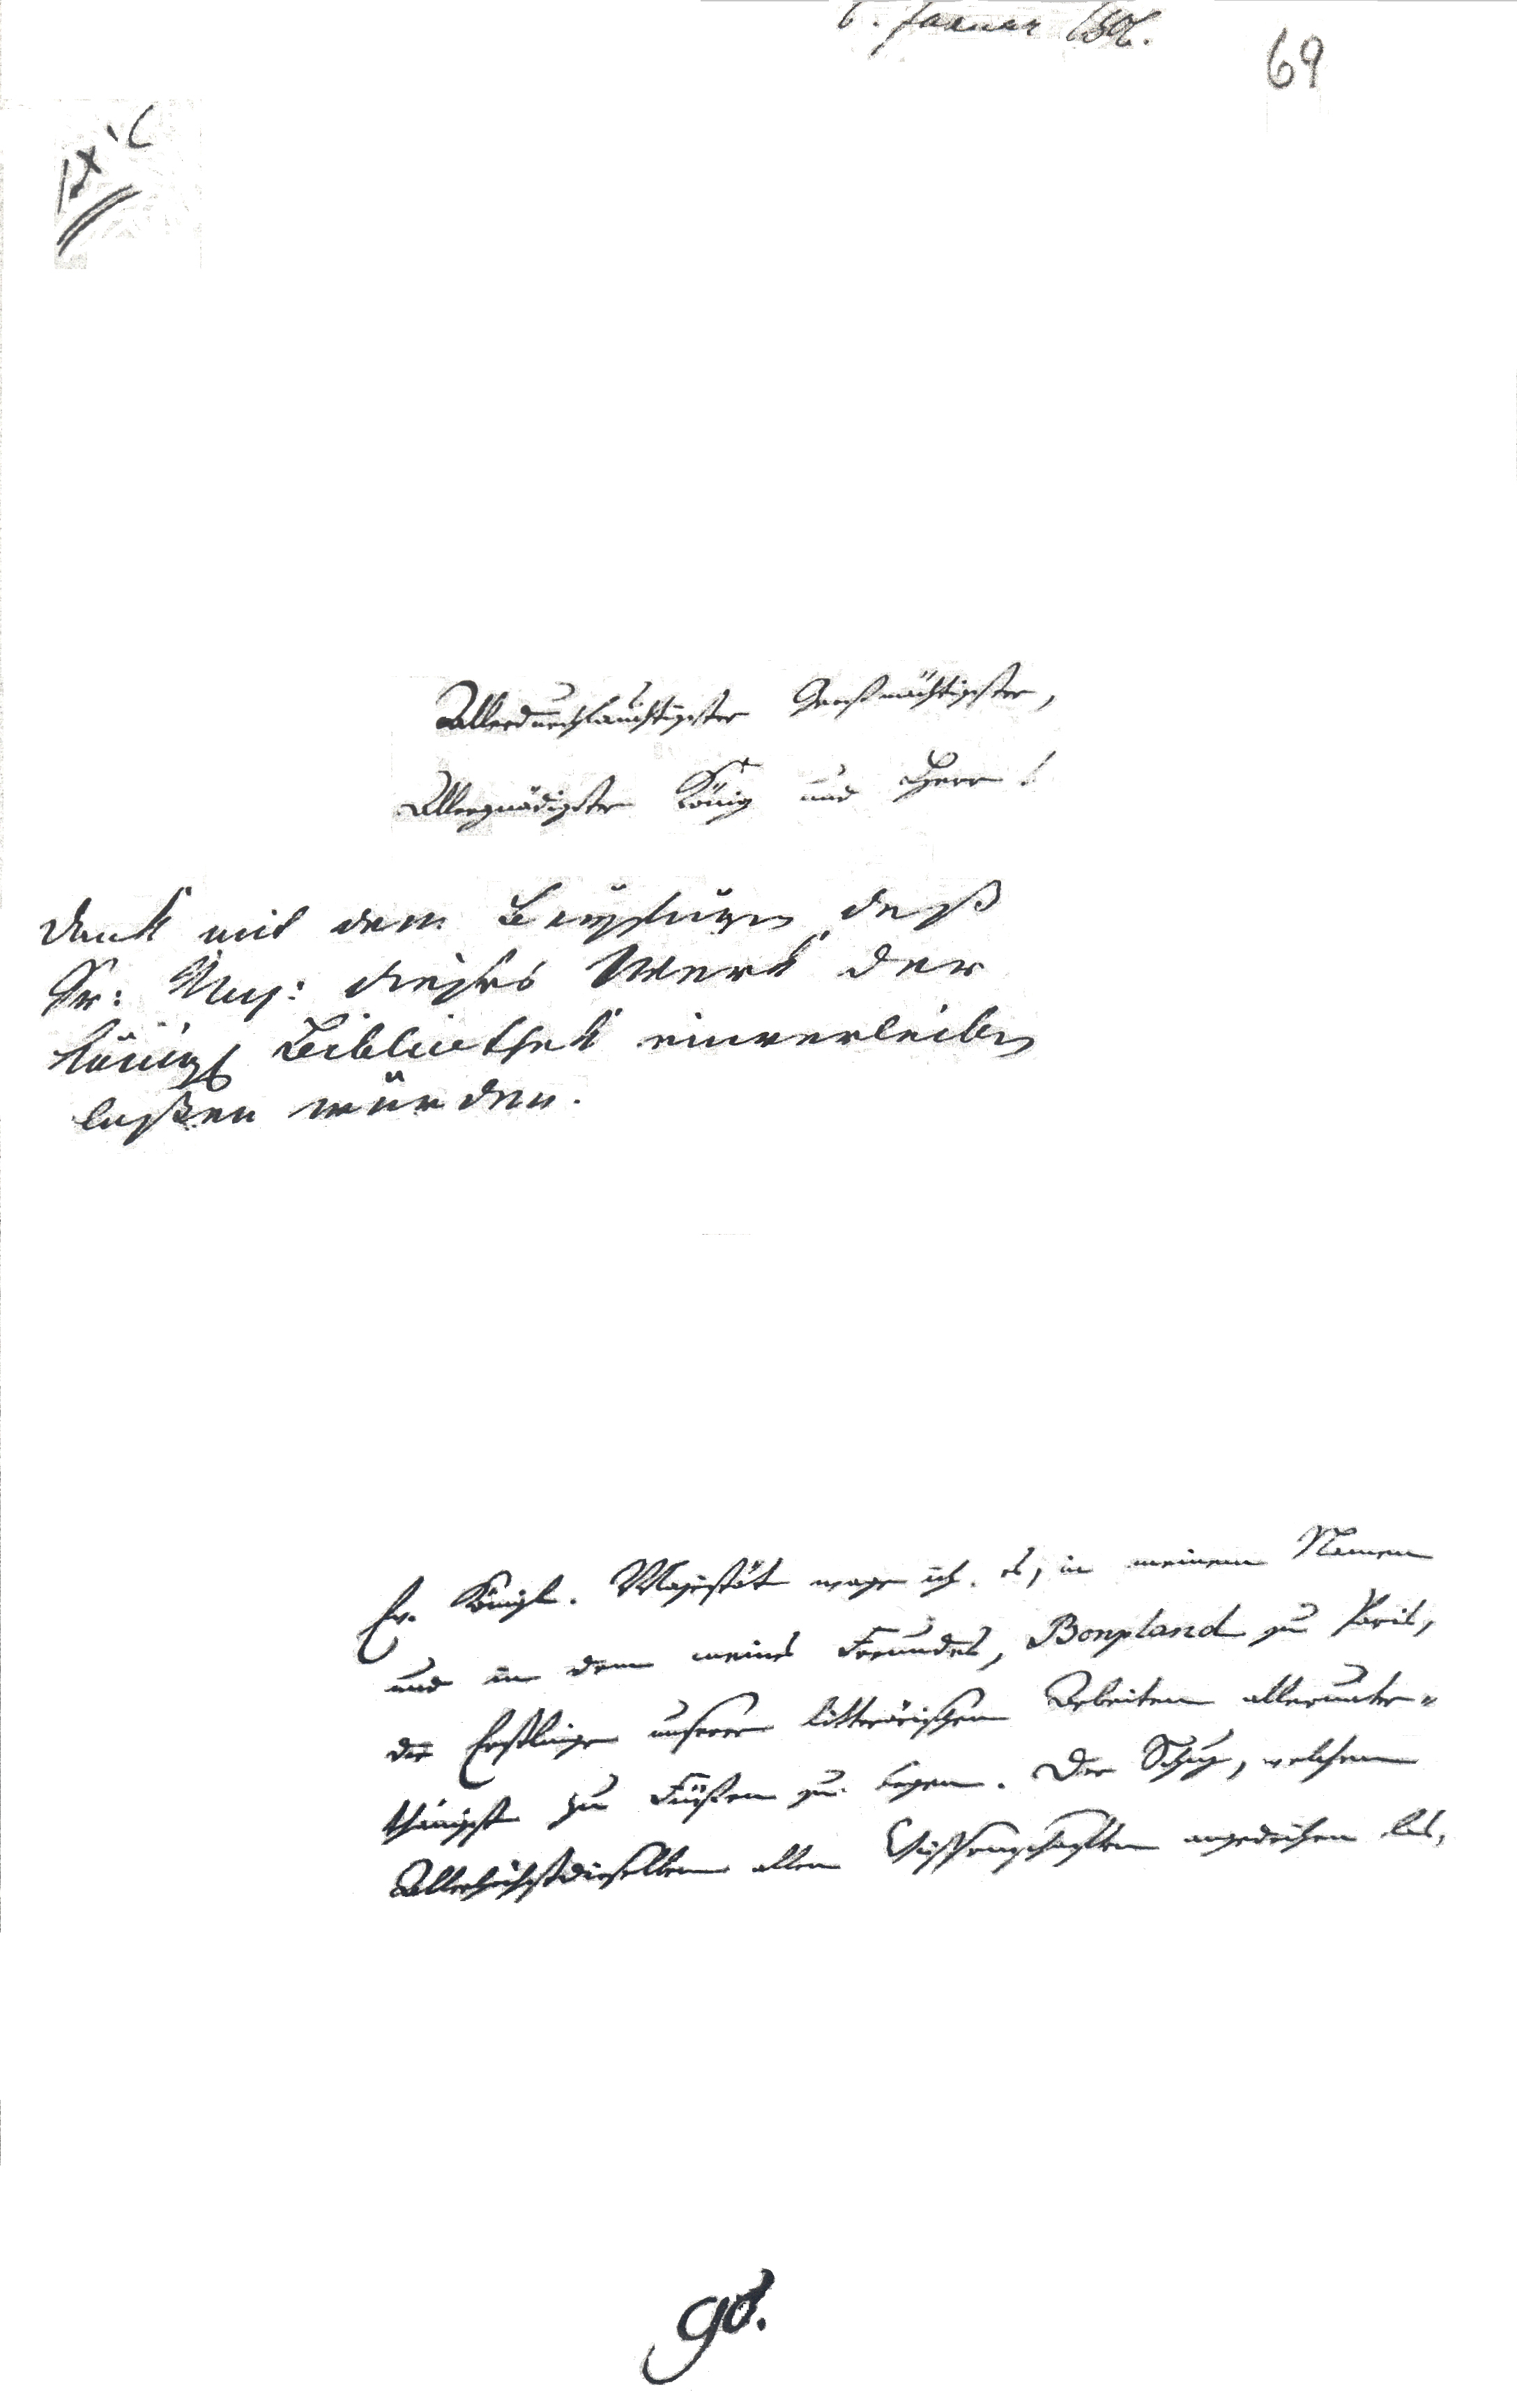 6. Januar 1806.
69
Allerdurchlauchtigster Großmächtigster,
Allergnädigster König und Herr!
Dank mit dem Beyfügen daß
Sr: Maj: dieses Werk der
Königl Bibliothek einverleiben
laßen würden.
Ew. Königl. Majestät wage ich es, in meinem Namen
und in dem meines Freundes, Bonpland zu Paris,
die Erstlinge unserer litterärischen Arbeiten allerunter-
thänigst zu Füßen zu legen. Der Schuz, welchen
Allerhöchstdieselben allen Wissenschaften angedeihen laß,